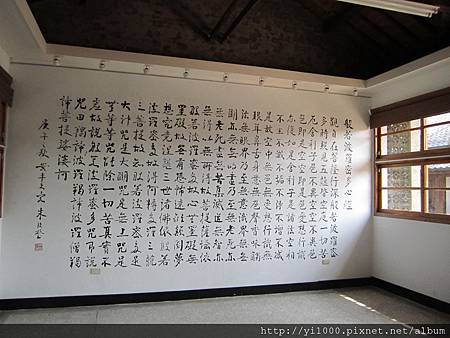 般若波羅蜜多心經
觀自在菩薩行深般若波羅蜜
多時照見五蘊皆空度一切苦
厄舍利子色不異空空不異色
色即是空空即是色受想行識
亦復如是舍利子是諸法空相
不生不滅不垢不淨不增不減
是故空中無色無受想行識無
眼耳鼻舌身意無色聲香味觸
法無眼界乃至無意識界無無
明亦無無明盡乃至無老死亦
無老死盡無苦集滅道無智亦
無得以無所得故菩提薩埵依
般若波羅蜜多故心無罣礙無
罣礙故無有恐怖遠離顛倒夢
想究竟涅槃三世諸佛依般若
波羅蜜多故得阿耨多羅三藐
三菩提故知般若波羅蜜多是
大神咒是大明咒是無上咒是
無等等咒能除一切苦真實不
虛故說般若波羅蜜多咒即說
咒曰揭諦揭諦波羅揭諦波羅僧揭
諦菩提薩婆訶
庚子
http://yi1000.pixnet.net/album